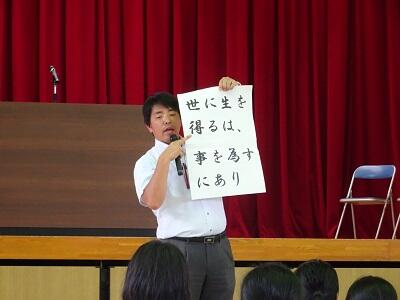 世に生を
得るは、
事を為す
にあり